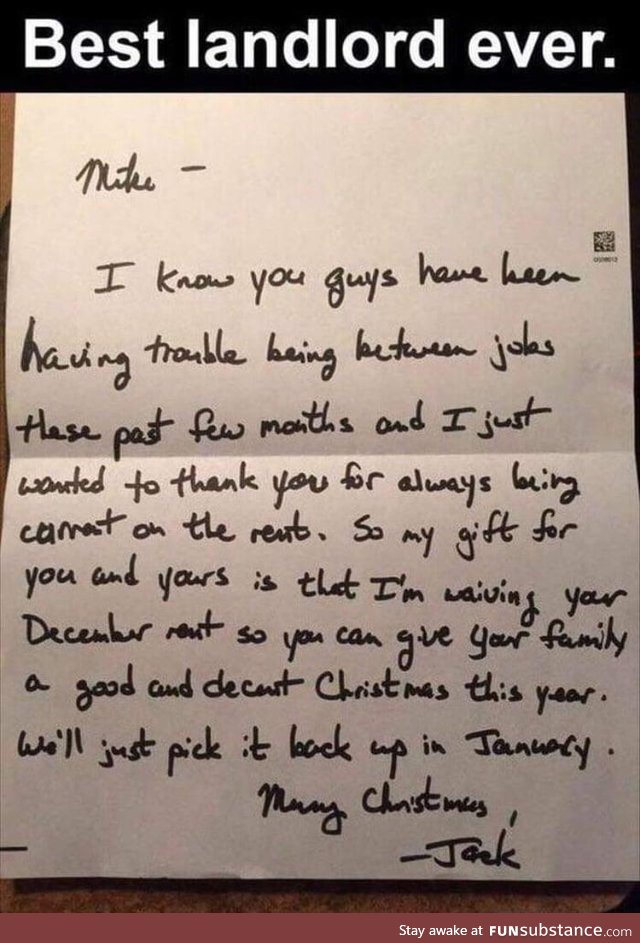 Best landlord ever.
Mike -
I know you guys have been
having trouble being between jobs
these past few months and I just
wanted to thank you for always being
current on the rent. So my gift for
you and yours is that I'm waiving your
December rent so you can give your family
a good and decent Christmas this year.
We'll just pick it back up in January.
Merry Christmas,
-Jack
Stay awake at FUNsubstance.com